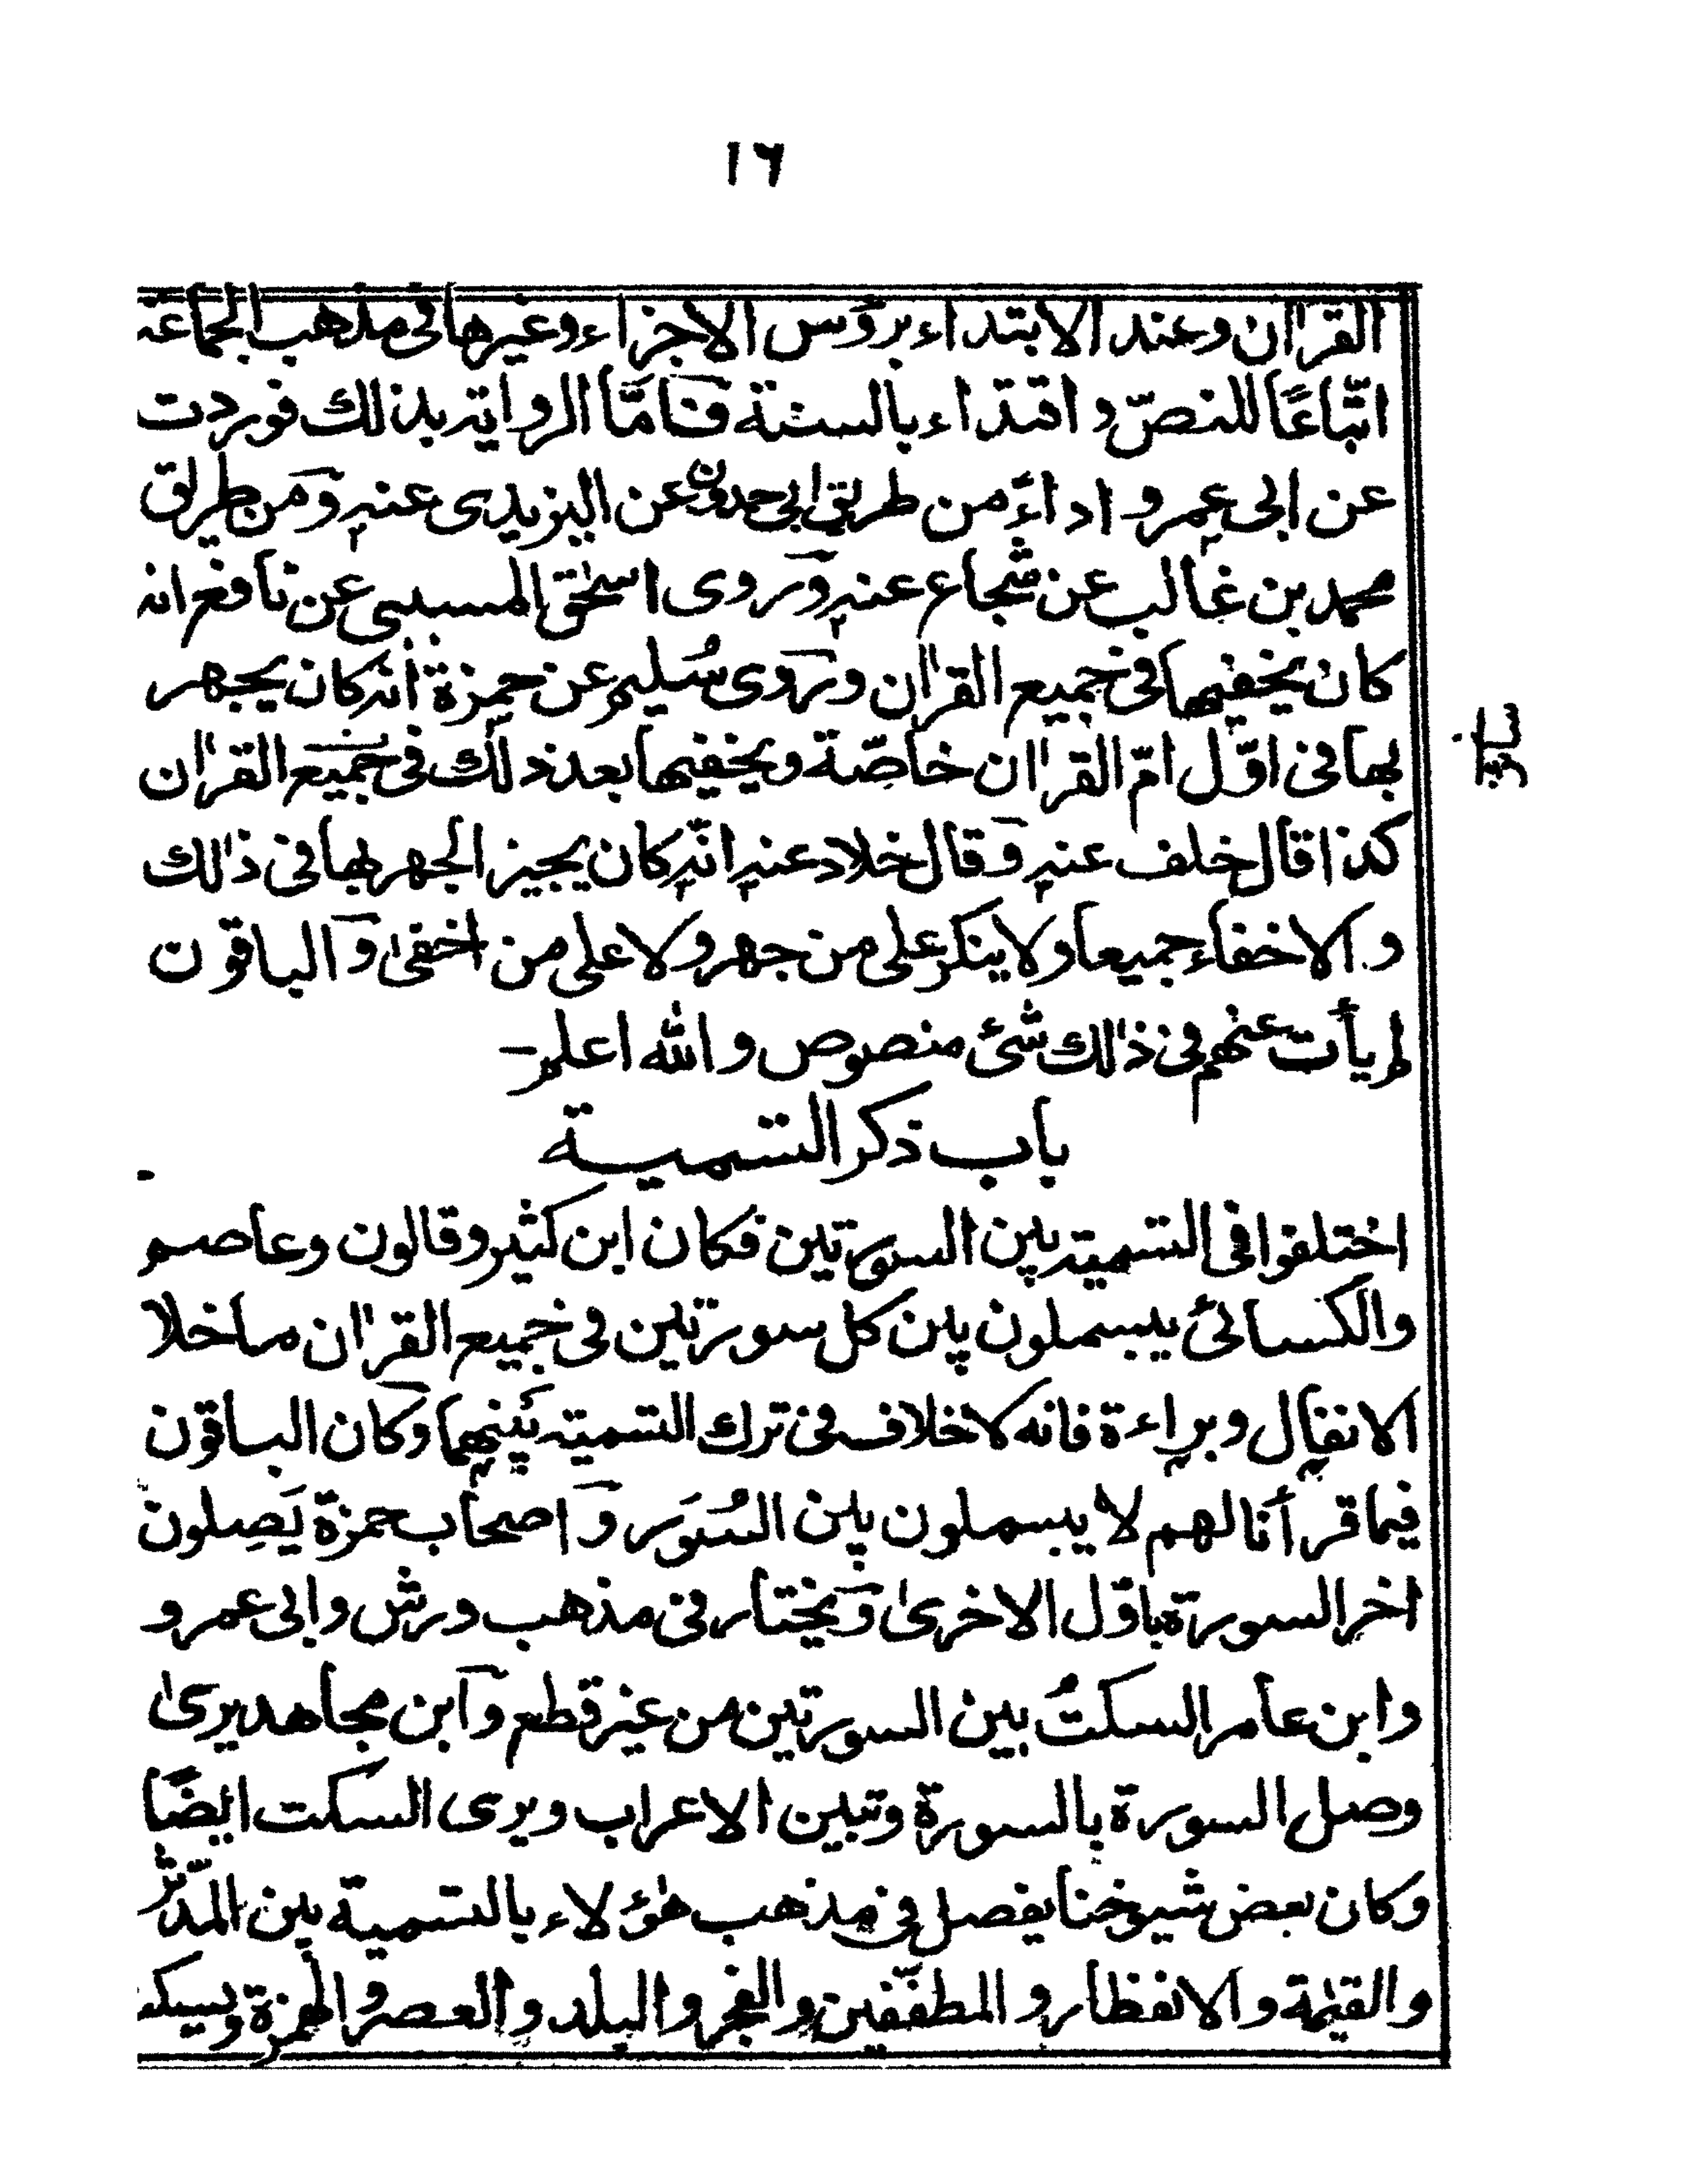 ١٦
القرآن وعند الابتداء برؤس الاجزاء وغيرها فى مذهب الجماعة
اتّباعًا للنصّ و اقتداء بالسنة فامّا الرواية بذلك فوردت
عن ابى عمرو اداءً من طريق ابى حمدون عن اليزيدى عنه ومن طريق
محمد بن غالب عن شجاع عنه وروى اسحٰق المسيبى عن نافع انه
كان يخفيها فى جميع القرآن وروى سُليم عن حمزة انه كان يجهر
بها فى اوّل امّ القرآن خاصّة ويخفيها بعد ذلك فى جميع القرآن
كذا قال خلف عنه وقال خلاد عنه انّه كان يجيز الجهر بها فى ذٰلك
والاخفاء جميعا ولا ينكر على من جهر ولا على من اخفىٰ والباقون
لم يأت عنهم فى ذٰلك شئ منصوص والله اعلم-
باب ذكر التسمية
اختلفوا فى التسمية بين السورتين فكان ابن كثير وقالون وعاصم
والكسائى يبسملون بين كل سورتين فى جميع القرآن ما خلا
الانفال وبراءة فانه لا خلاف فى ترك التسمية بينهما وكان الباقون
فيما قرأنا لهم لا يبسملون بين السُوَر و اصحاب حمزة يَصِلون
اخر السورة باوّل الاخرىٰ ويختار فى مذهب ورش وابى عمرو
وابن عامر السكتُ بين السورتين من غير قطع وابن مجاهد يرىٰ
وصل السورة بالسورة وتبين الاعراب ويرى السكت ايضًا
وكان بعض شيوخنا يفصل فى مذهب هٰؤلاء بالتسمية بين المدّثر
والقيٰمة والانفطار و المطفّفين والفجر والبلد والعصر والهمزة ويسكت